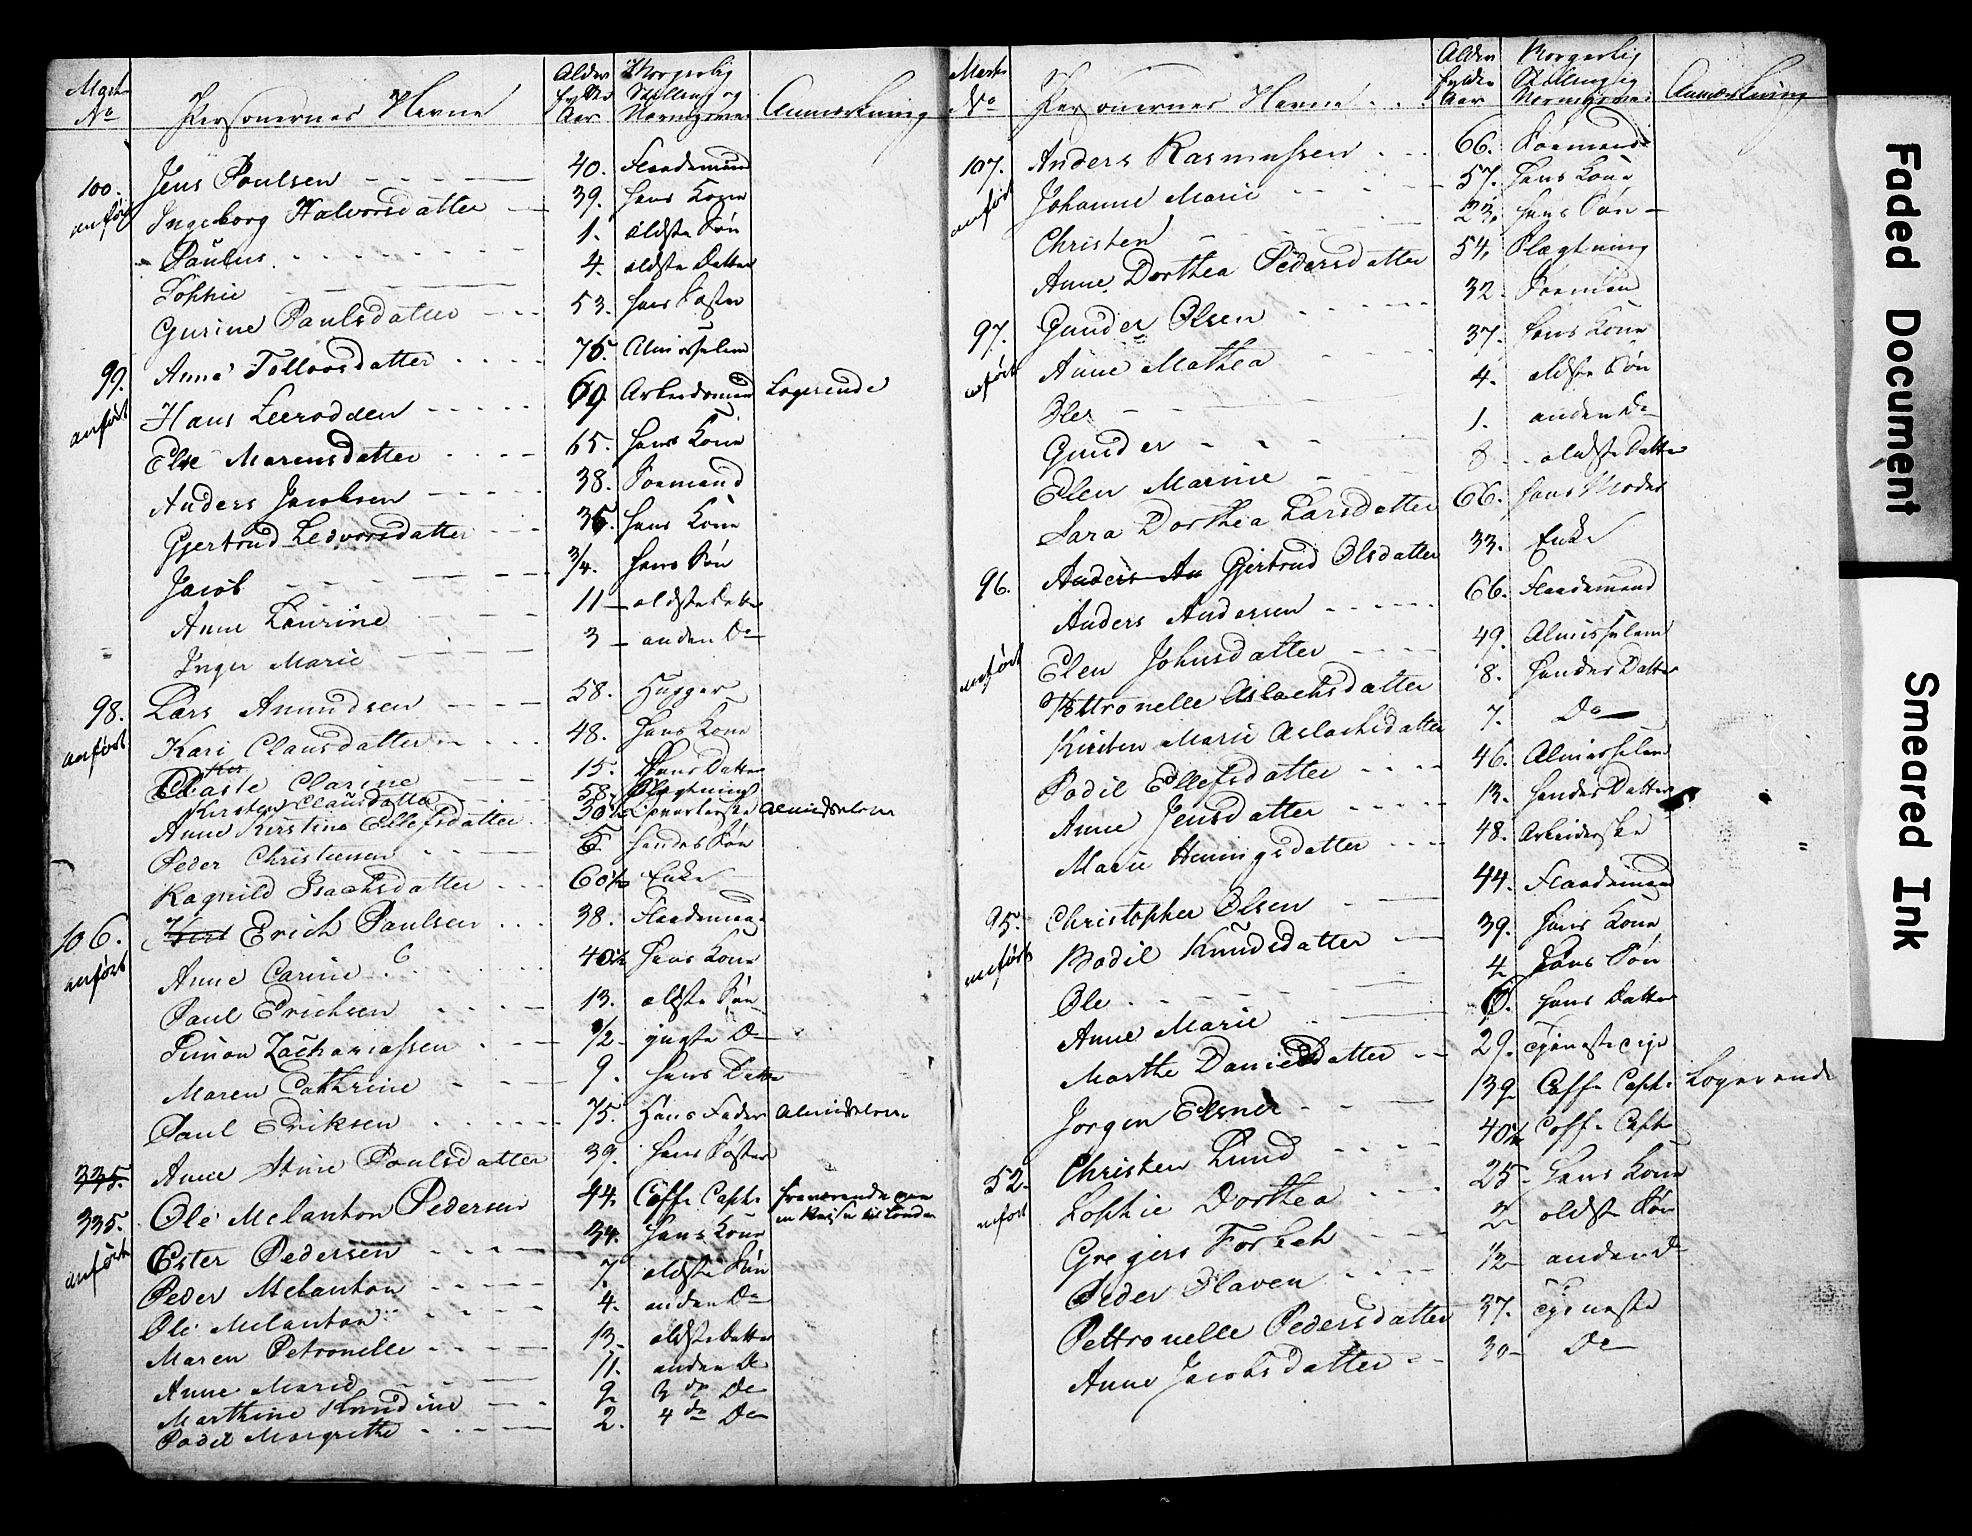 Matr No Personernes Navne Alder fyldte Aar Borgerlig Stilling og Næringsvei Anmærkning
100. Jens Poulsen 40. Flaademand
anført Ingeborg Halvorsdatter 39. hans Kone
Paulus 1. ældste Søn
Sophie 4. ældste Datter
Gurine Paulsdatter 53. hans Søster
99. Anne Tellovsdatter 75. Almisselem
anført Hans Leerodden 69 Arbeidsmand Logerende
Else Marensdatter 65. hans Kone
Anders Jacobsen 38. Søemand
Gjertrud Ledvorsdatter 35. hans Kone
Jacob 3/4. hans Søn
Anne Laurine 11 ældste Datter
Inger Marie 3 anden Do
98. Lars Amundsen 58. Hugger
anført Kari Clausdatter 48. hans Kone
Aaste Clarine 15. Hans Datter
Kirsten Clausdatter 58. Slægtning
Anne Kirstine Ellefsdatter 30 1/2 Almisselem
Peder Christensen 5 hendes Søn
Ragnild Isachsdatter 60 1/2 Enke
106. Erich Paulsen 38. Flaademand
anført Anne Carine 40 1/2 hans Kone
Paul Erichsen 13. ældste Søn
Simon Zachariassen 1/2 yngste Do
Maren Cathrine 9. hans Datter
Paul Eriksen 75. Hans Fader Almisselem
335. Anne Stine Poulsdatter 39. hans Søster
335. Ole Melanton Pedersen 44. Coffe Capt. fraværende paa en Reise til London
anført Ester Pedersen 34. hans Kone
Peder Melanton 7. ældste Søn
Ole Melanton 4. anden Do
Maren Petronelle 13. ældste Datter
Anne Marie 11. anden Do
Marthine Knudine 9 3de Do
Bodil Margrethe 2. 4de Do
Matr No Personernes Navne Alder fyldte Aar Borgerlig Stilling og Næringsvei Anmærkning
107. Anders Rasmussen 66. Søemand
anført Johanne Marie 57. hans Kone
Christen 23. hans Søn
Anne Dorthea Pedersdatter 54. Slægtning
97. Gunder Olsen 32. Søemand
anført Anne Mathea 37. hans Kone
Ole 4. ældste Søn
Gunder 1. anden Do
Elen Marine 8 ældste Datter
Sara Dorthea Larsdatter 66. hans Moder
96. Anders An Gjertrud Olsdatter 33. Enke
Anders Andersen 66. Flaademand
anført Elen Johnsdatter 49. Almisselem
Pettronelle Aslachsdatter 8. hendes Datter
Kirsten Marie Aslachsdatter 7. Do
Bodil Ellefsdatter 46. Almisselem
Anne Jensdatter 13. hendes Datter
Marie Henningsdatter 48. Arbeiderske
95. Christopher Olsen 44. Flaademand
anført Bodil Knudsdatter 39. hans Kone
Ole 4 hans Søn
Anne Marie hans Datter
Marthe Danielsdatter 29. Tjenestepige
Jørgen Elsner 39 Coffe Capt. Logerende
52. Christen Lund 40 1/2 Coffe Capt
anført Sophie Dorthea 25 hans Kone
Gregers Forbech 2 ældste Søn
Peder Slaven 1/2 anden Do
Pettronelle Pedersdatter 37. Tjeneste
Anne Jacobsdatter 30 Do
Faded Document
Smeared Ink